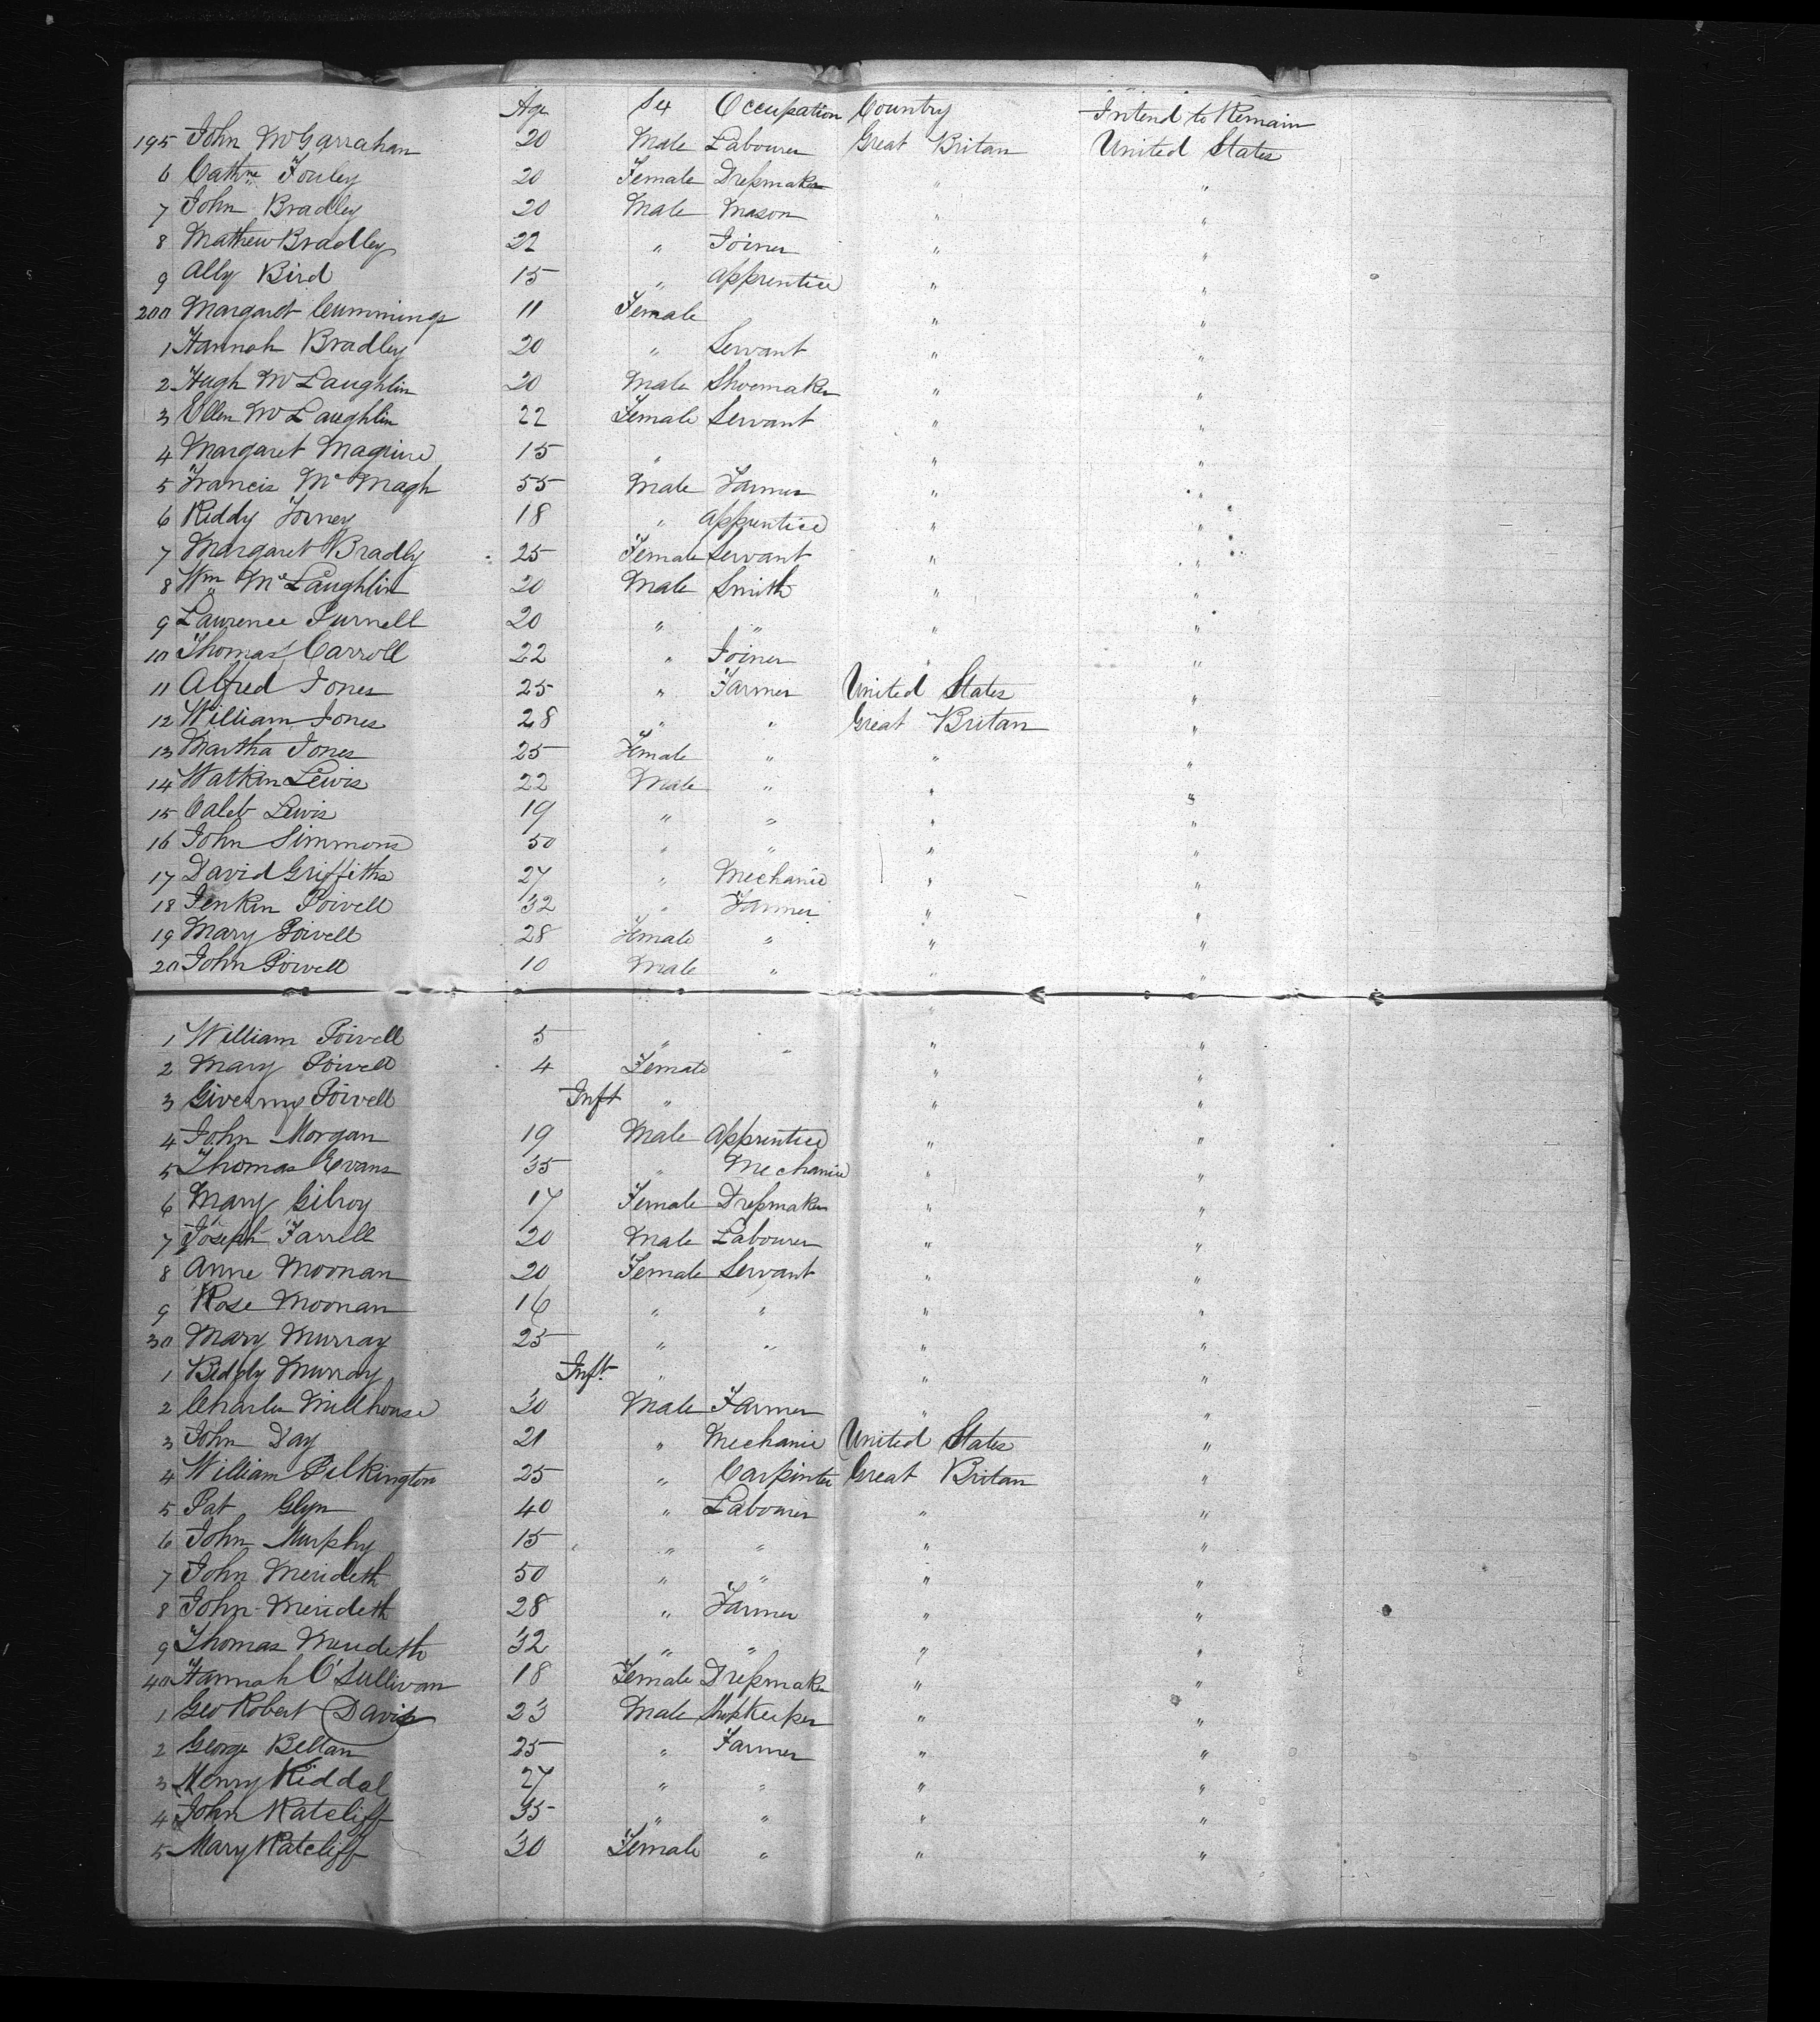 Age Sex Occupation Country Intend to Remain
195 John McGarrahan 20 Male Labourer Great Britan United States
6 Cathne Fouley 20 Female Dressmaker " "
7 John Bradley 20 Male Mason " "
8 Mathew Bradley 22 " Joiner " "
9 Ally Bird 15 " Apprentice " "
200 Margaret Cummings 11 Female " "
1 Hannah Bradley 20 " Servant " "
2 Hugh McLaughlin 20 Male Shoemaker " "
3 Ellen McLaughlin 22 Female Servant " "
4 Margaret Maguire 15 " " "
5 Francis McMagh 55 Male Farmer " "
6 Kiddy Torney 18 " Apprentice " "
7 Margaret Bradly 25 Female Servant " "
8 Wm McLaughlin 20 Male Smith " "
9 Laurence Purnell 20 " " " "
10 Thomas Carroll 22 " Joiner " "
11 Alfred Jones 25 " Farmer United States "
12 William Jones 28 " " Great Britan "
13 Martha Jones 25 Female " " "
14 Watkin Lewis 22 Male " " "
15 Caleb Lewis 19 " " " "
16 John Simmons 50 " " " "
17 David Griffiths 27 " Mechanic " "
18 Jenkin Powell 32 " Farmer " "
19 Mary Powell 28 Female " " "
20 John Powell 10 Male " " "
1 William Powell 5 " " " "
2 Mary Powell 4 Female " "
3 Powell Inft " " "
4 John Morgan 19 Male Apprentice " "
5 Thomas Evans 35 " Mechanic " "
6 Mary Gilroy 17 Female Dressmaker " "
7 Joseph Farrell 20 Male Labourer " "
8 Anne Moonan 20 Female Servant " "
9 Rose Moonan 16 " " " "
30 Mary Murray 25 " " " "
1 Biddy Murray Inft " " "
2 Charles Millhouse 30 Male Farmer " "
3 John Day 21 " Mechanic United States "
4 William Pilkington 25 " Carpinter Great Britan "
5 Pat Glyn 40 " Labourer " "
6 John Murphy 15 " " " "
7 John Merideth 50 " " " "
8 John Merideth 28 " Farmer " "
9 Thomas Merideth 32 " " " "
40 Hannah O'Sullivan 18 Female Dressmaker " "
1 Geo Robert Davis 23 Male Shopkeeper " "
2 George Beltan 25 " Farmer " "
3 Henry Kiddal 27 " " " "
4 John Ratcliff 35 " " " "
5 Mary Ratcliff 30 Female " " "